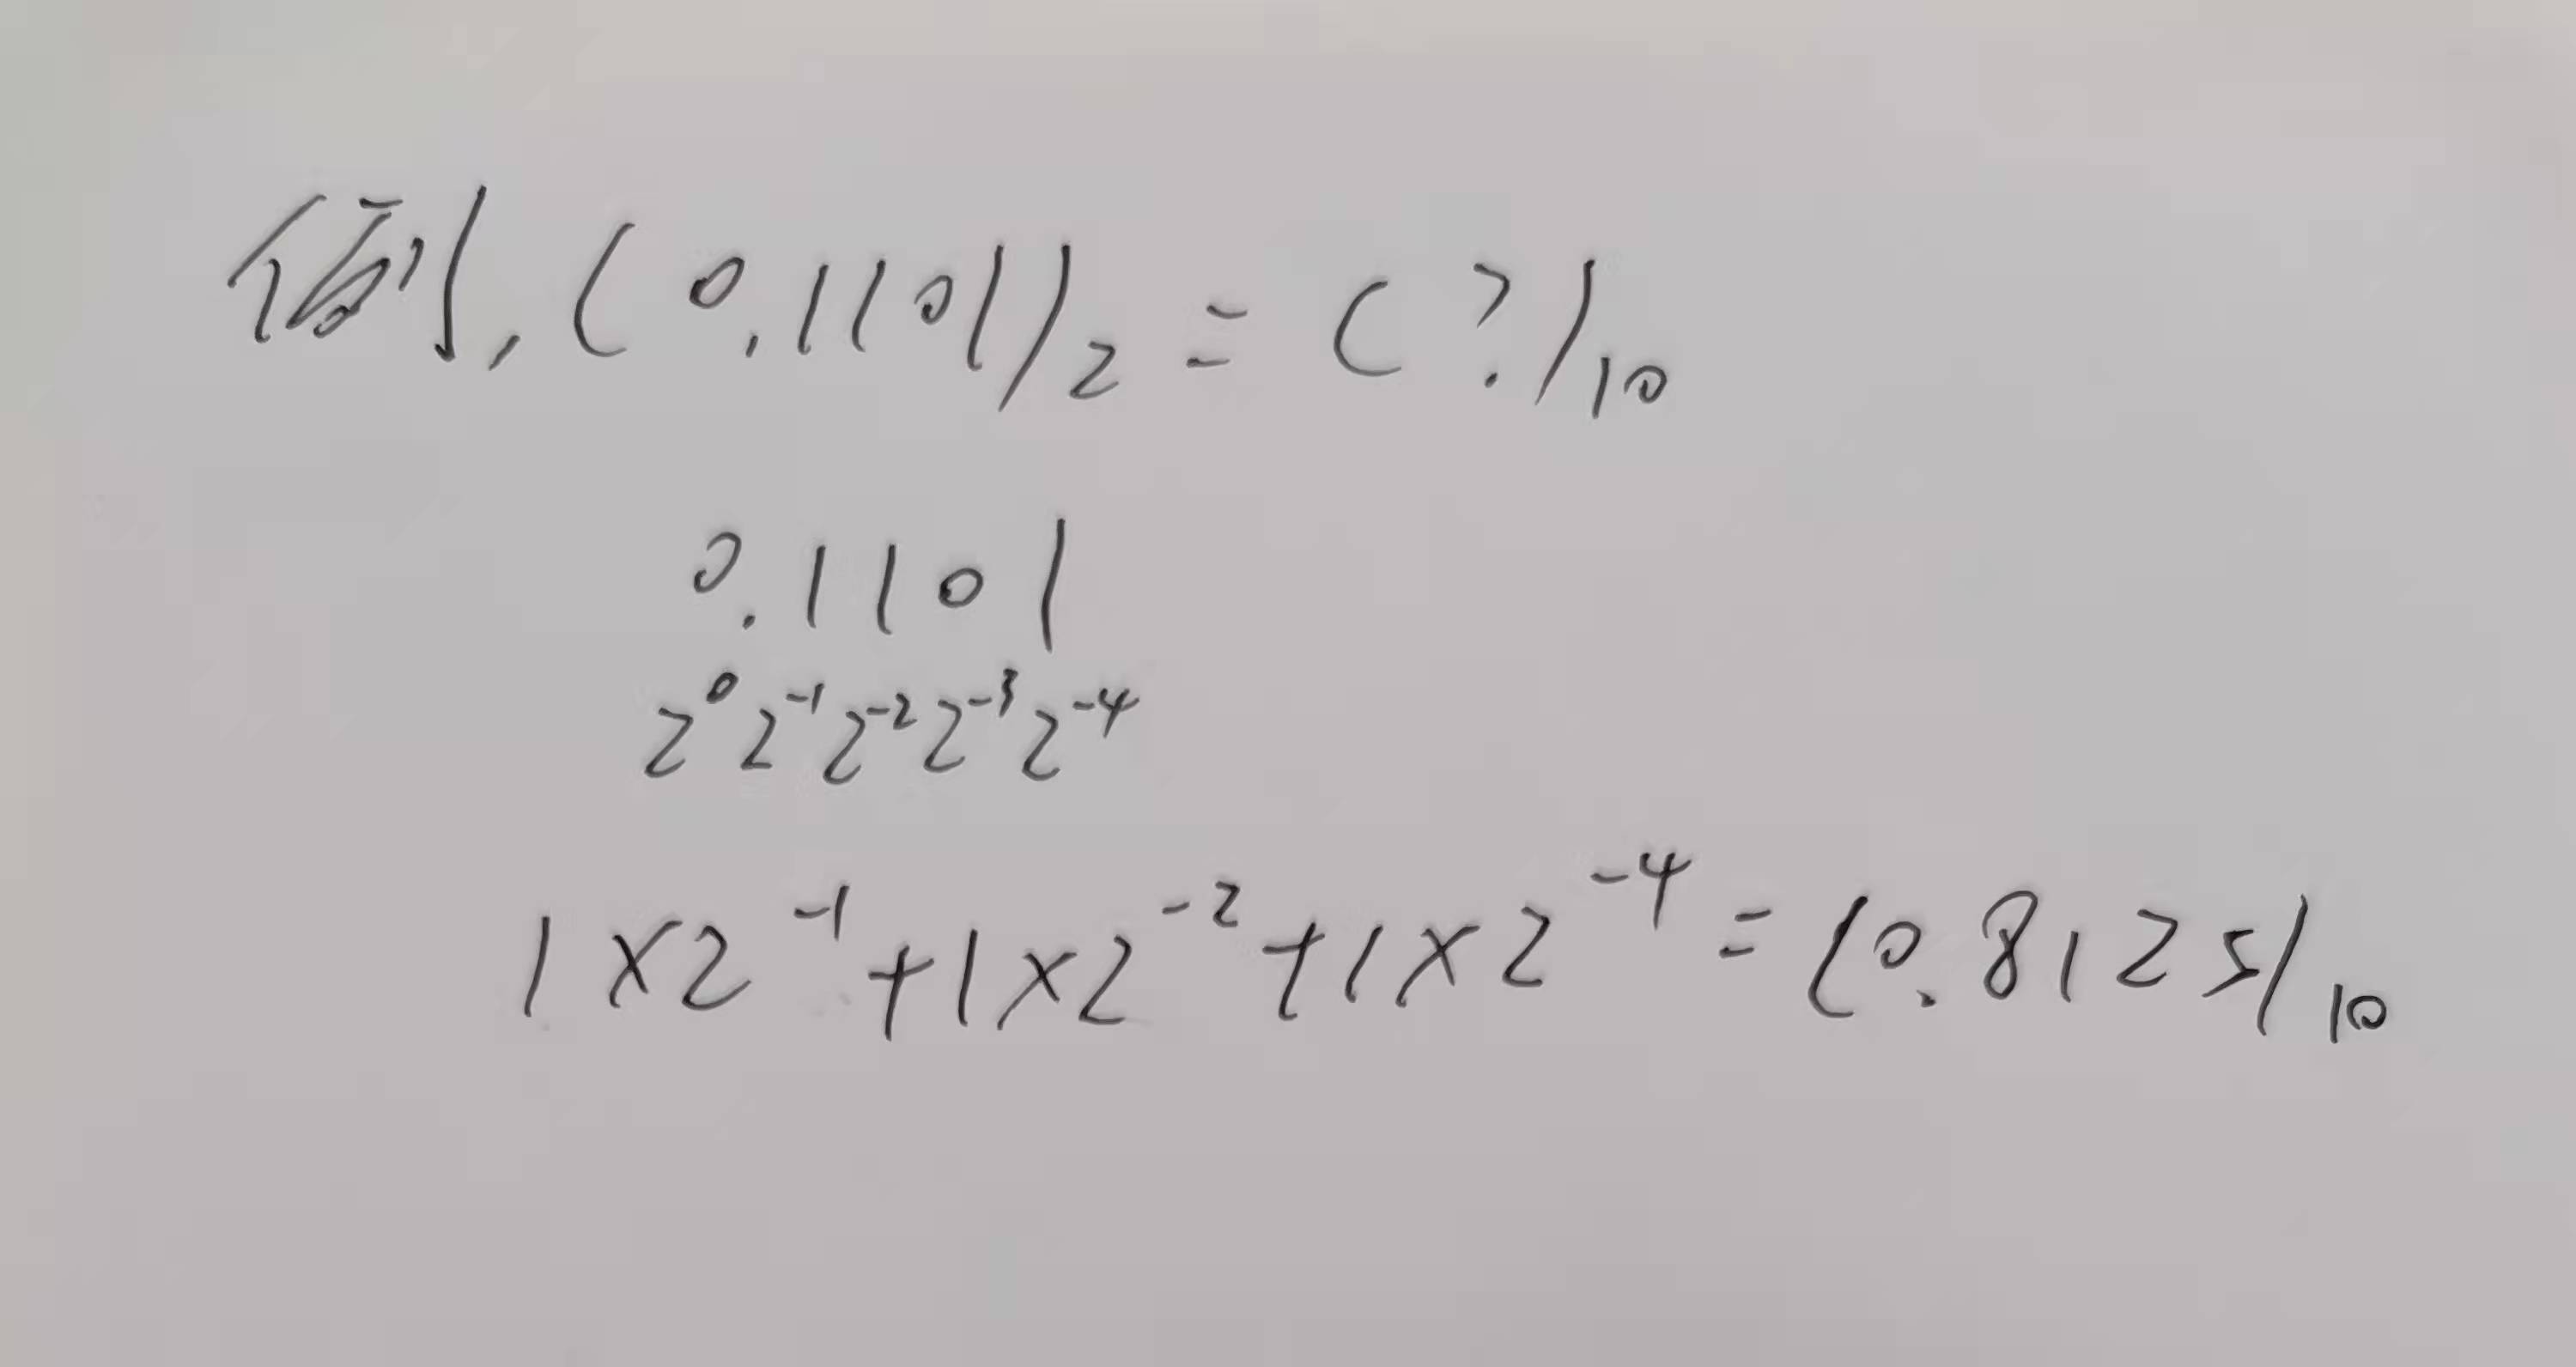 例, (0.1101)₂ = (?)₁₀
0.1101
2⁰ 2⁻¹ 2⁻² 2⁻³ 2⁻⁴
1×2⁻¹+1×2⁻²+1×2⁻⁴=(0.8125)₁₀